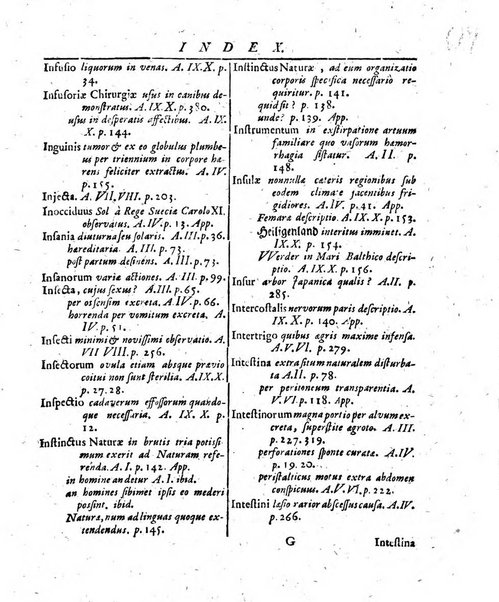 INDEX.
Infusio liquorum in venas. A. IX. X. p.
34.
Infusoriæ Chirurgiæ usus in canibus de-
monstratus. A. IX. X. p. 380.
usus in desperatis affectibus. A. IX.
X. p. 144.
Inguinis tumor & ex eo globulus plumbe-
us per triennium in corpore hæ-
rens feliciter extractus. A. IV.
p. 155.
Injecta. A. VII. VIII. p. 203.
Inocciduus Sol à Rege Sueciæ Carolo XI.
observatus. A. IV. p. 13. App.
Insania diuturna seu solaris. A. III. p. 36.
hæreditaria. A. III. p. 73.
post partum desinens. A. III. p. 73.
Insanorum variæ actiones. A. III. p. 99.
Insecta, cujus sexus? A. III. p. 65.
per os sensim excreta. A. IV. p. 66.
horrenda per vomitum excreta. A.
IV. p. 51.
Insecti minimi & novissimi observatio. A.
VII VIII. p. 256.
Insectorum ovula etiam absque prævio
coitu non sunt sterilia. A. IX. X.
p. 27. 28.
Inspectio cadaverum effossorum quando-
que necessaria. A. IX. X. p.
12.
Instinctus Naturæ in brutis tria potissi-
mum exerit ad Naturam refe-
renda. A. I. p. 142. App.
in homine andetur A. I. ibid.
an homines sibimet ipsis eo mederi
possint. ibid.
Naturæ, num ad linguas quoque ex-
tendendus. p. 145.
Instinctus Naturæ, ad eum organizatio
corporis specifica necessario re-
quiritur. p. 141.
quid sit? p. 138.
unde? p. 139. App.
Instrumentum in exstirpatione artuum
familiare quo vasorum hæmor-
rhagia sistatur. A. II. p.
148.
Insulæ nonnullæ cæteris regionibus sub
eodem climate jacentibus fri-
gidiores. A. IV. p. 41. App.
Femaræ descriptio. A. IX. X. p. 153.
Heiligenland interitus imminet. A.
IX. X. p. 154.
VVerder in Mari Balthico descri-
ptio. A. IX. X. p. 156.
Insur arbor Japanica qualis? A. II. p.
285.
Intercostalis nervorum paris descriptio. A.
IX. X. p. 140. App.
Intertrigo quibus agris maxime infensa.
A. V. VI. p. 279.
Intestina extra situm naturalem disturba-
ta A. II. p. 78.
per peritonæum transparentia. A.
V. VI. p. 118.
Intestinorum magna portio per alvum ex-
creta, superstite ægroto. A. III.
p. 227. 319.
perforationes sponte curatæ. A. IV.
p. 19. 20.
peristalticus motus extra abdomen
conspicuus. A. V. VI. p. 222.
Intestini læsio rarior abscessus causa. A. IV.
p. 266.
G Intestina